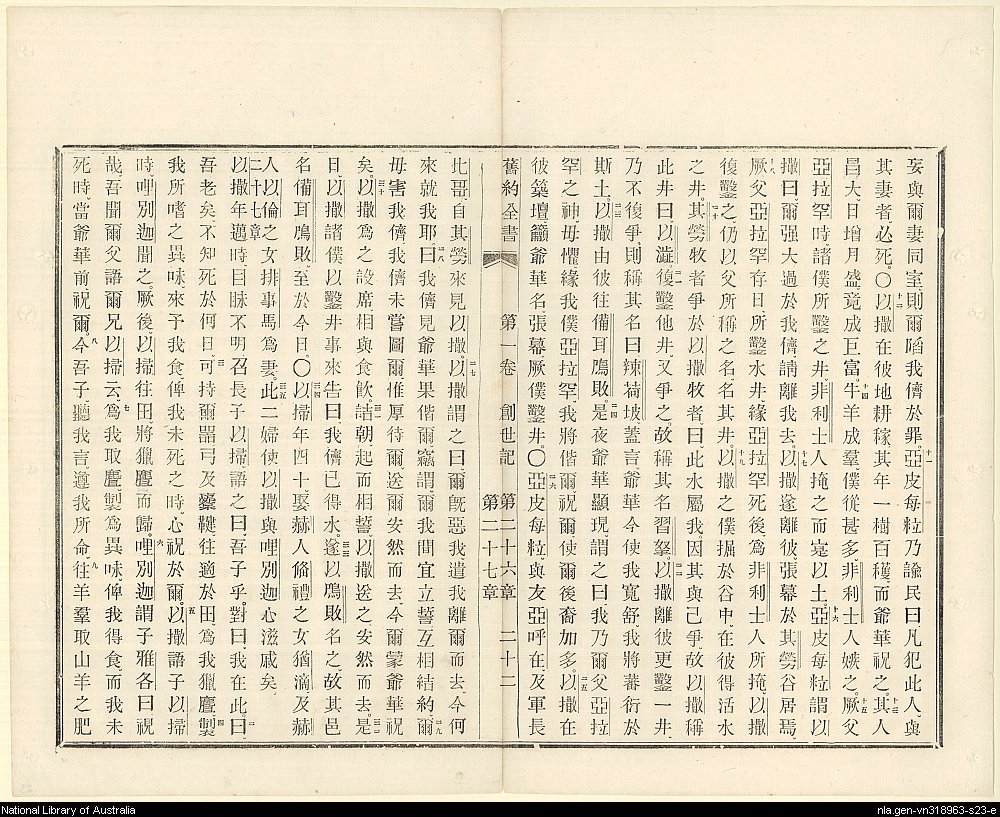 妄與爾妻同室則爾陷我儕於罪。十一亞皮每粒乃諭民曰凡犯此人與
其妻者必死。〇十二以撒在彼地耕稼其年一樹百穫而爺華祝之。十三其人
昌大日增月盛竟成巨富。十四牛羊成羣僕從甚多非利士人嫉之。十五厥父
亞拉罕時諸僕所鑿之井非利士人掩之而寔以土。十六亞皮每粒謂以
撒曰爾强大過於我儕請離我去。十七以撒遂離彼張幕於其勞谷居焉。
十八厥父亞拉罕存日所鑿水井緣亞拉罕死後爲非利士人所掩以撒
復鑿之仍以父所稱之名名其井。十九以撒之僕掘於谷中在彼得活水
之井。二十其勞牧者爭於以撒牧者曰此水屬我因其與己爭故以撒稱
此井曰以澁。二一復鑿他井又爭之故稱其名習拏。二二以撒離彼更鑿一井
乃不復爭則稱其名曰辣荷坡蓋言爺華今使我寬舒我將蕃衍於
斯土。二三以撒由彼往備耳鴈敗。二四是夜爺華顯現謂之曰我乃爾父亞拉
罕之神毋懼緣我僕亞拉罕我將偕爾祝爾使爾後裔加多。二五以撒在
彼築壇籲爺華名張幕厥僕鑿井。〇二六亞皮每粒與友亞呼在及軍長
舊約全書 第一卷 創世記 第二十六章 第二十七章 二十二
比哥自其勞來見以撒。二七以撒謂之曰爾旣惡我遣我離爾而去今何
來就我耶。二八曰我儕見爺華果偕爾竊謂爾我間宜立誓互相結約。二九爾
毋害我儕我儕未嘗圖爾惟厚待爾送爾安然而去今爾蒙爺華祝
矣。三十以撒爲之設席相與食飲。三一詰朝起而相誓以撒送之安然而去。三二是
日以撒諸僕以鑿井事來告曰我儕已得水。三三遂以鴈敗名之故其邑
名備耳鴈敗至於今日。〇三四以掃年四十娶赫人倐禮之女猶滴及赫
人以倫之女排事馬爲妻。三五此二婦使以撒與哩別迦心滋戚矣。
二十七章
以撒年邁時目眛不明召長子以掃語之曰吾子乎對曰我在此。二曰
吾老矣不知死於何日。三可持爾器弓及櫜鞬往適於田爲我獵麞。四製
我所嗜之異味來予我食俾我未死之時心祝於爾。五以撒語子以掃
時哩別迦聞之厥後以掃往田將獵麞而歸。六哩別迦謂子雅各曰祝
哉吾聞爾父語爾兄以掃云。七爲我取麞製爲異味俾我得食而我未
死時當爺華前祝爾。八今吾子聽我言遵我所命。九往羊羣取山羊之肥
National Library of Australia
nla.gen-vn318963-s23-e